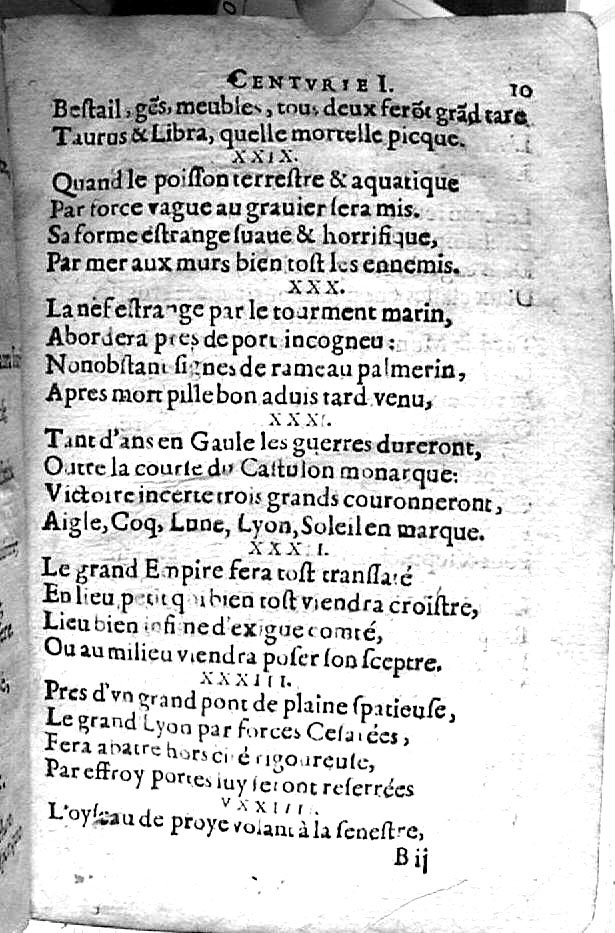 CENTVRIE I. 10
Bestail, gẽs, meubles, tous deux ferõt grãd tare
Taurus & Libra, quelle mortelle picque.
XXIX.
Quand le poiſſon terreſtre & aquatique
Par force vague au grauier ſera mis.
Sa forme eſtrange ſuaue & horrifique,
Par mer aux murs bien toſt les ennemis.
XXX.
La nef eſtrange par le tourment marin,
Abordera pres de port incogneu:
Nonobſtant ſignes de rameau palmerin,
Apres mort pille bon aduis tard venu,
XXXI.
Tant d'ans en Gaule les guerres dureront,
Outre la courſe du Caſtulon monarque:
Victoire incerte trois grands couronneront,
Aigle, Coq, Lune, Lyon, Soleil en marque.
XXXII.
Le grand Empire ſera toſt tranſlaté
En lieu petit qui bien toſt viendra croiſtre,
Lieu bien infime d'exigue comté,
Ou au milieu viendra poſer ſon ſceptre.
XXXIII.
Pres d'vn grand pont de plaine ſpatieuſe,
Le grand Lyon par forces Ceſarées,
Fera abatre hors cité rigoureuſe,
Par effroy portes luy ſeront reſerrées
L'oyſeau de proye volant à la feneſtre,
B ij